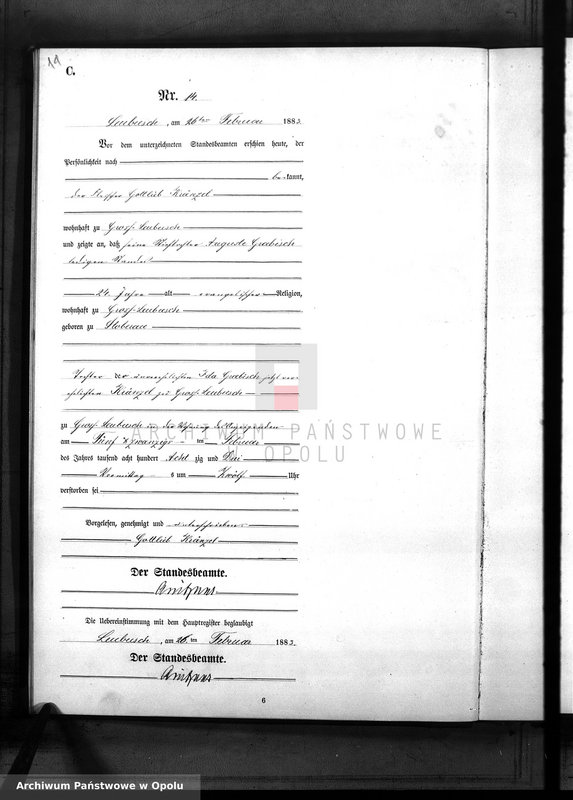 C.
Nr. 14.
Leubusch, am 26ten Februar 1883.
Vor dem unterzeichneten Standesbeamten erschien heute, der
Persönlichkeit nach
bekannt,
der Gottlieb Kränzel
wohnhaft zu Groß Leubusch
und zeigte an, daß seine Auguste Grabisch
ledigen Standes
24 Jahre alt evangelischer Religion,
wohnhaft zu Groß Leubusch
geboren zu Stoberau
Tochter der unverehelichten Ida Grabisch jetzt ver-
ehelichten Kränzel zu Groß Leubusch
zu Groß Leubusch in der Wohnung des
am Fünf & zwanzig ten Februar
des Jahres tausend acht hundert Acht zig und Drei
Vormittag s um Zwölf Uhr
verstorben sei
Vorgelesen, genehmigt und unterschrieben
Gottlieb Kränzel
Der Standesbeamte.
Die Uebereinstimmung mit dem Hauptregister beglaubigt
Leubusch, am 26. ten Februar 1883.
Der Standesbeamte.
6
ARCHIWUM PAŃSTWOWE
W OPOLU
Archiwum Państwowe w Opolu